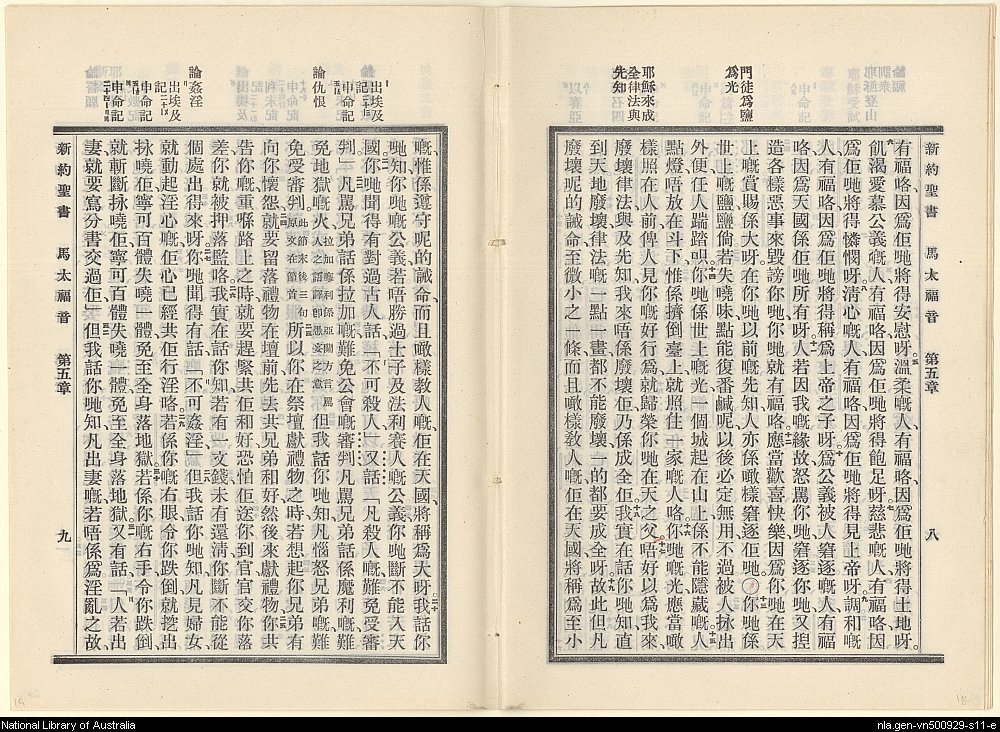 新約聖書 馬太福音 第五章 八
有福咯、因爲佢哋將得安慰呀。溫柔嘅人、有福咯、因爲佢哋將得土地呀。
飢渴愛慕公義嘅人、有福咯、因爲佢哋將得飽足呀。慈悲嘅人、有福咯、因
爲佢哋將得憐憫呀。淸心嘅人、有福咯、因爲佢哋將得見上帝呀。調和嘅
人、有福咯、因爲佢哋將得稱爲上帝之子呀。爲公義被人窘逐嘅人、有福
咯、因爲天國係佢哋所有呀。人若因我嘅緣故、怒罵你哋、窘逐你哋、又揑
造各樣惡事來毀謗你哋、你哋就有福咯。應當歡喜快樂、因爲你哋在天
上嘅賞賜係大呀、在你哋以前嘅先知、人亦係噉樣窘逐佢哋。你哋係
世上嘅鹽、鹽倘若失曉味、點能復番鹹呢、以後必定無用、不過被人捺出
外便、任人踹踏呮。你哋係世上嘅光、一個城起在山上、係不能隱藏嘅。人
點燈、唔放在斗下、惟係擠倒臺上、就照住一家嘅人咯。你哋嘅光、應當噉
樣照在人前、俾人見你嘅好行爲、就歸榮你哋在天之父。唔好以爲我來
廢壞律法、與及先知、我來唔係廢壞佢、乃係成全佢。我實在話你哋知、直
到天地廢壞、律法嘅一點一畫、都不能廢壞、一的都要成全呀。故此但凡
廢壞呢的誡命至微小之一條、而且噉樣敎人嘅、佢在天國將稱爲至小
門徒爲鹽
爲光
耶穌來成
全律法與
先知
嘅、惟係遵守呢的誡命、而且噉樣敎人嘅、佢在天國、將稱爲大呀。我話你
哋知、你哋嘅公義、若唔勝過士子及法利賽人嘅公義、你哋斷不能入天
國。你哋聞得有對過古人話、「不可殺人」、又話、「凡殺人嘅、難免受審
判」。凡罵兄弟話係拉加嘅、難免公會嘅審判、凡罵兄弟話係魔利嘅、難
免地獄嘅火。拉加、魔利、係亞蘭方言、罵人之語、譯卽愚妄之意 但我話你哋知、凡惱怒兄弟嘅、難
免受審判。此節末後三句、原文在節首 所以你在祭壇獻禮物之時、若想起你兄弟有
向你懷怨、就要留落禮物在壇前、先去共兄弟和好、然後來獻禮物。你共
告你嘅、重喺路上之時、就要趕緊共佢和好、恐怕佢送你到官、官交你落
差、你就被押落監咯。我實在話你知、若有一文錢未有還淸、你斷不能從
個處出得來呀。你哋聞得有話、「不可姦淫」、但我話你哋知、凡見婦女、
就動起淫心嘅、佢心已經共佢行淫咯。若係你嘅右眼令你跌倒、就挖出
捺嘵佢、寧可百體失嘵一體、免至全身落地獄。若係你嘅右手令你跌倒、
就斬斷捺嘵佢、寧可百體失嘵一體、免至全身落地獄。又有話、「人若出
妻、就要寫分書交過佢」、但我話你哋知、凡出妻嘅、若唔係爲淫亂之故、
新約聖書 馬太福音 第五章 九
出埃及
記二十
申命記
論仇恨
論姦淫
出埃及
記二十
申命記
申命記
National Library of Australia
nla.gen-vn500929-s11-e